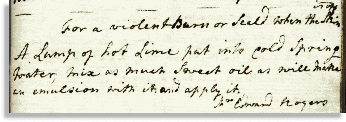 For a violent Burn or Scald when the Skin
is off
A Lump of hot Lime put into cold Spring
Water, mix as much Sweet oil as will make
an emulsion with it and apply it.
Edward Rogers